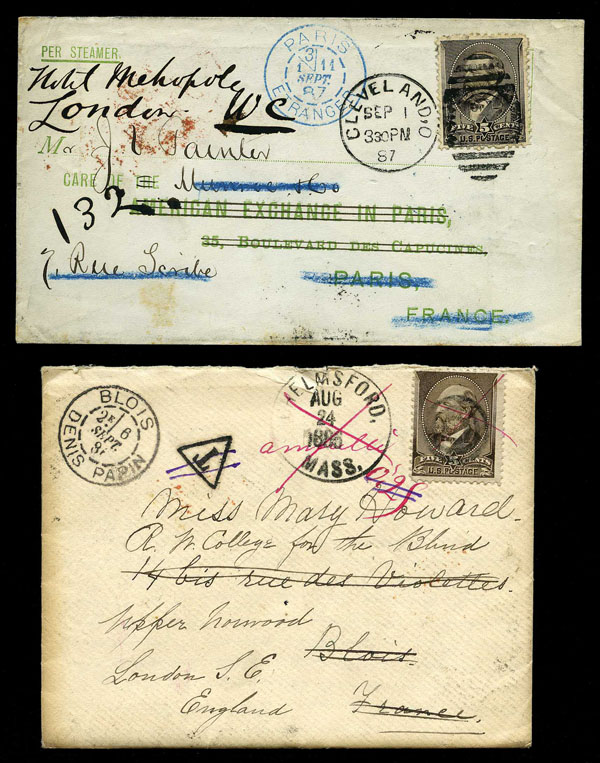 PER STEAMER.
Hotel Metropole
London WC
PARIS
3
1 11
SEPT.
87
ETRANGER
CLEVELAND, O
SEP 1
3 30 PM
87
FIVE 5 CENTS
U.S. POSTAGE
Mr J
CARE OF THE
132
AMERICAN EXCHANGE IN PARIS,
35, BOULEVARD DES CAPUCINES
7. Rue Scribe
PARIS,
FRANCE.
BLOIS
6
SEPT.
DENIS PAPIN
T
ELMSFORD,
AUG
24
MASS.
U.S. POSTAGE
Miss Mary Howard.
R. W. College for the Blind
14 bis rue des Violettes.
Upper Norwood
Blois.
London S.E.
England
France.